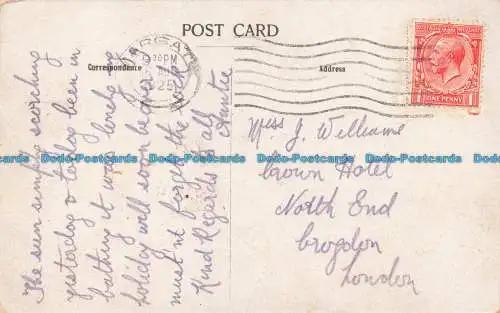 POST CARD
Correspondence
Address
MARGATE
25
POSTAGE
ONE PENNY
The sun simply scorching
yesterday & today been in
bathing it was lovely
holiday will soon be
must nt forget the
Kind Regards to all
Auntie
Miss J. Williams
Crown Hotel
North End
Croydon
London
Dodo-Postcards Dodo-Postcards Dodo-Postcards Dodo-Postcards Dodo-Postcards